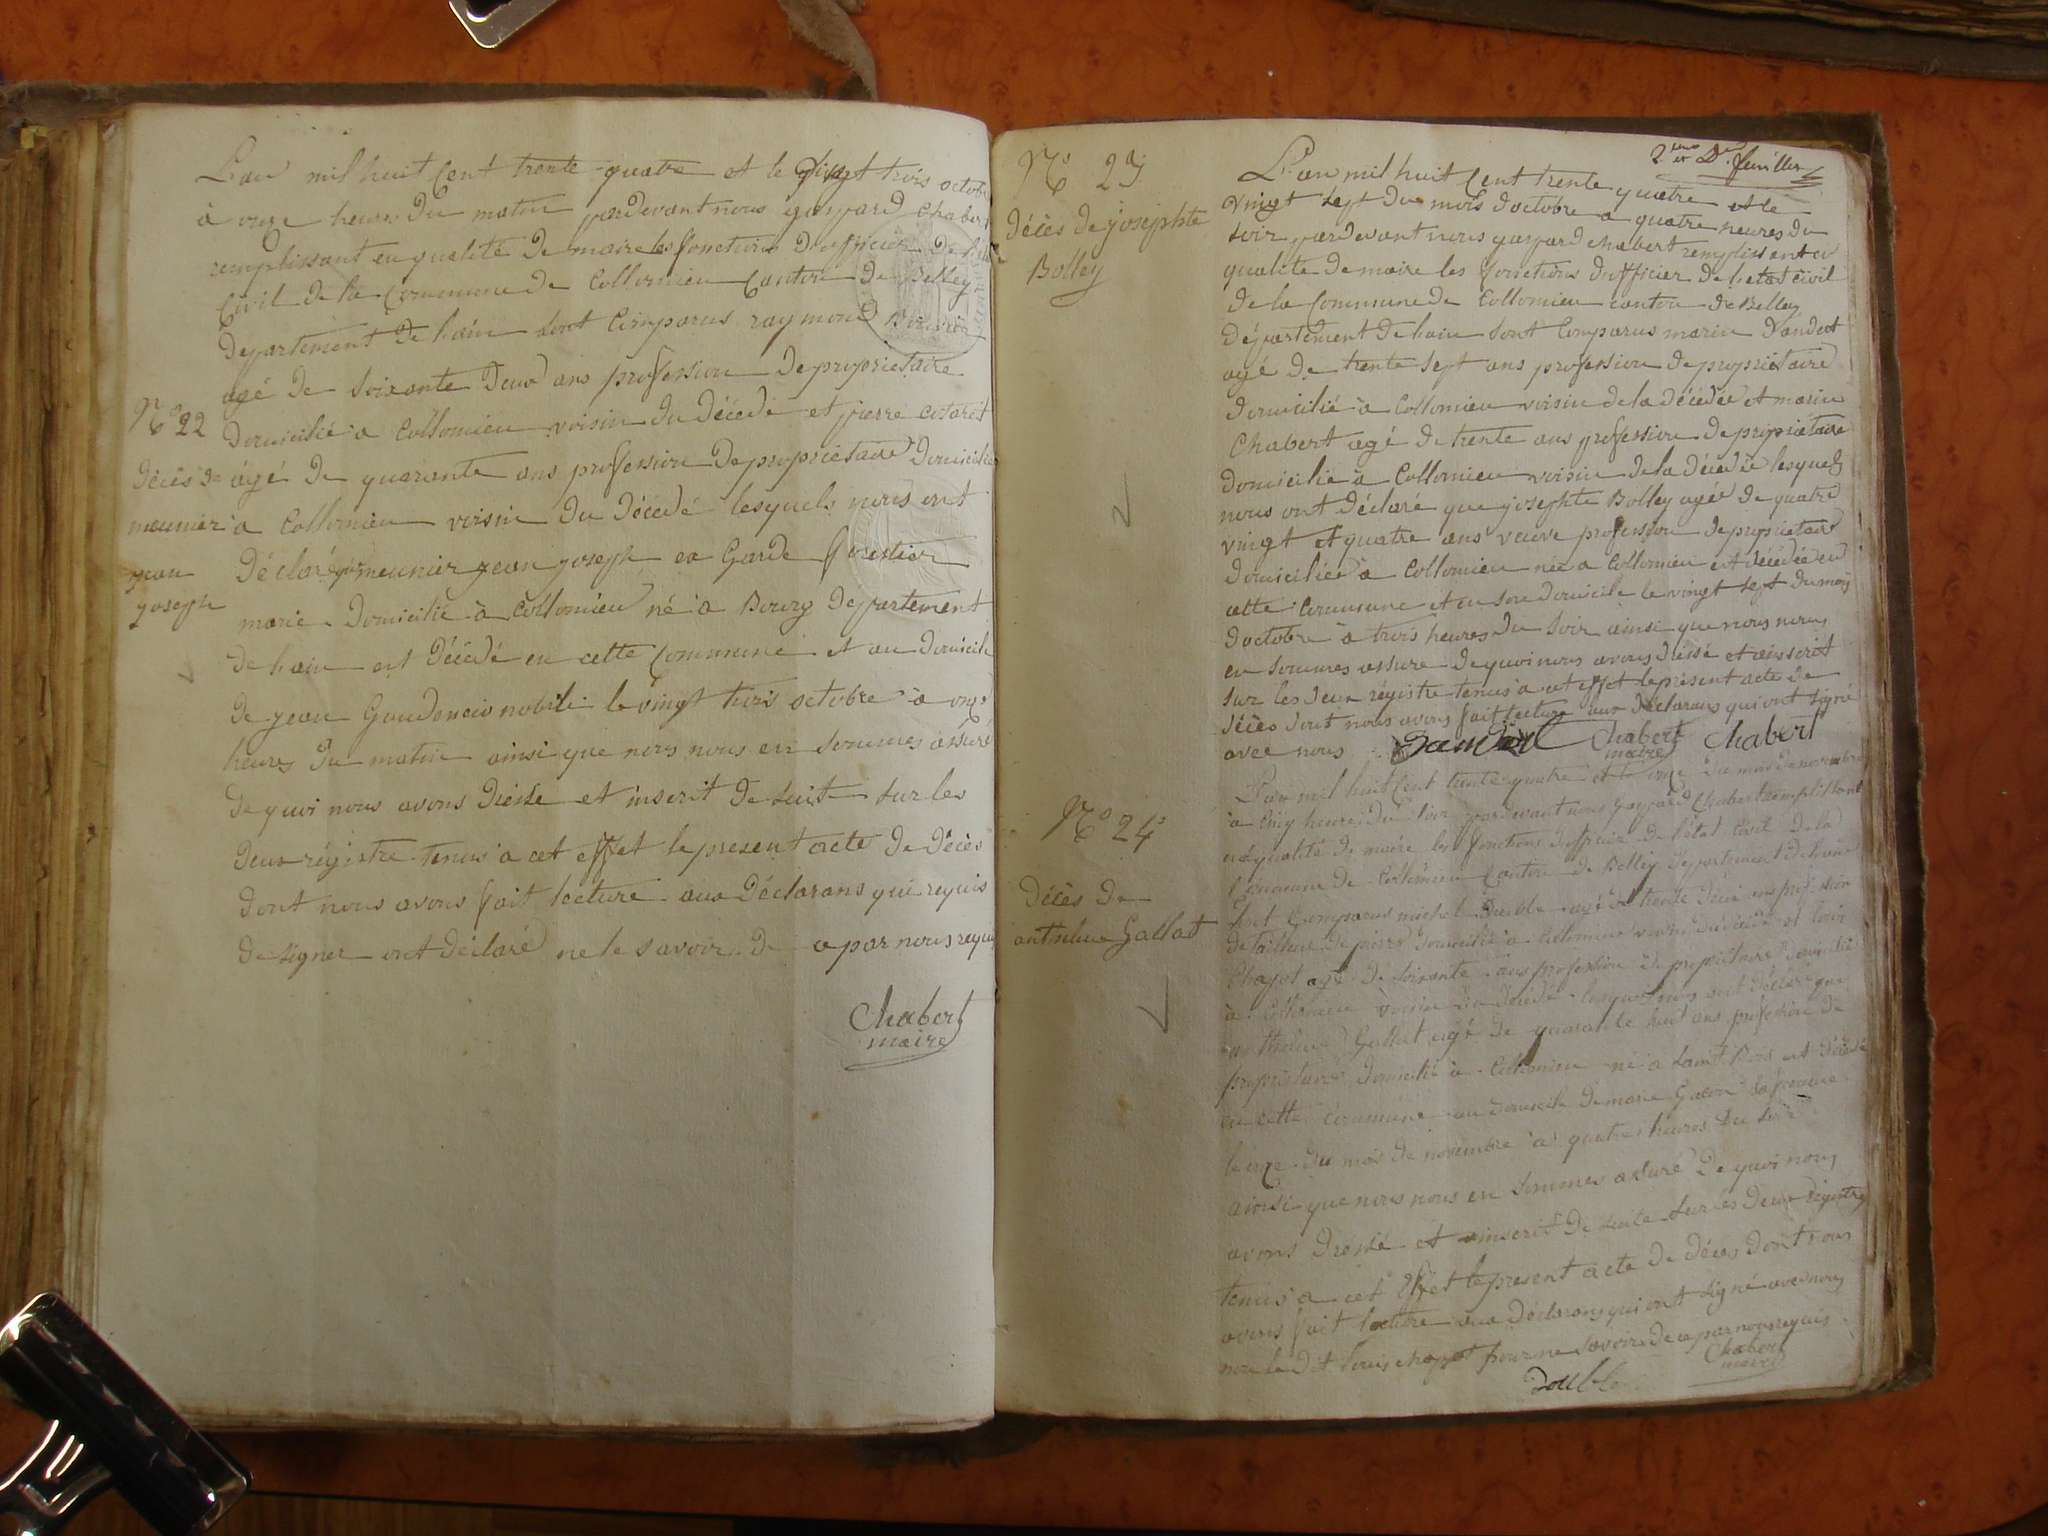 L'an mil huit Cent trente quatre et le vingt trois octobre
à onze heures du matin pardevant nous gaspard Chabert
remplissant en qualité de maire les fonctions d'officier de l'état
Civil de la Commune de Collomieu Canton de Belley
département de l'ain sont Comparus raymond
agé de soixante deux ans profession de proprietaire
N° 22
domicilié a Collomieu voisin du décédé et pierre
décès de
agé de quarante ans profession de proprietaire domicilié
meunier
a Collomieu voisin du décédé lesquels nous ont
jean
joseph
déclaré que meunier jean joseph ex Garde forestier
marié domicilié à Collomieu né a Bourg département
de l'ain est décédé en cette Commune et au domicile
de jean Gaudencio nobili le vingt trois octobre à onze
heures du matin ainsi que nous nous en sommes assuré
de quoi nous avons dressé et inscrit de suite sur les
deux régistre tenus a cet effet le present acte de décès
dont nous avons fait lecture aux déclarans qui requis
de signer ont déclaré ne le savoir de a par nous requis
Chabert
maire
2eme et Dr feuillet
N° 23
décès de josephte
Bolley
L'an mil huit Cent trente quatre et le
vingt sept du mois d'octobre a quatre heures du
soir pardevant nous gaspard chabert remplissant en
qualité de maire les fonctions d'officier de l'etat civil
de la Commune de Collomieu canton de Belley
département de l'ain sont Comparus marin Dandet
agé de trente sept ans profession de propriétaire
domicilié à Collomieu voisin de la décédée et marin
Chabert agé de trente ans profession de propriétaire
domicilié à Collomieu voisin de la décédée lesquels
nous ont déclaré que josephte Bolley agée de quatre
vingt et quatre ans veuve profession de proprietaire
domiciliée a Collomieu née a Collomieu est décédée en
cette Commune et en son domicile le vingt sept du mois
d'octobre à trois heures du soir ainsi que nous nous
en sommes assuré de quoi nous avons dressé et inscrit
sur les deux régistre tenus a cet effet le présent acte de
décès dont nous avons fait lecture aux déclarans qui ont signé
avec nous
Chabert
maire
Chabert
N° 24
Décès de
anthelme Gallat
L'an mil huit Cent trente quatre et le onze du mois de novembre
a cinq heures du soir pardevant nous Gaspard Chabert remplissant
en qualité de maire les fonctions d'officier de l'état civil de la
Commune de Collomieu Canton de Belley département de l'ain
sont Comparus michel Double agé de trente deux ans profession
de tailleur de pierre domicilié a Collomieu voisin du décédé et louis
Chapot agé de soixante ans profession de propriétaire domicilié
à Collomieu voisin du décédé lesquels nous ont déclaré que
anthelme Gallat agé de quarante huit ans profession de
propriétaire domicilié à Collomieu né a Saint Bois est décédé
en cette Commune au domicile de marie Gacon sa femme
le onze du mois de novembre a quatre heures du soir
ainsi que nous nous en sommes assuré de quoi nous
avons dressé et inscrit de suite sur les deux régistres
tenus a cet effet le present acte de décès dont nous
avons fait lecture aux déclarans qui ont signé avec nous
non le dit louis chapot pour ne savoir de ce par nous requis
Chabert
maire
Double